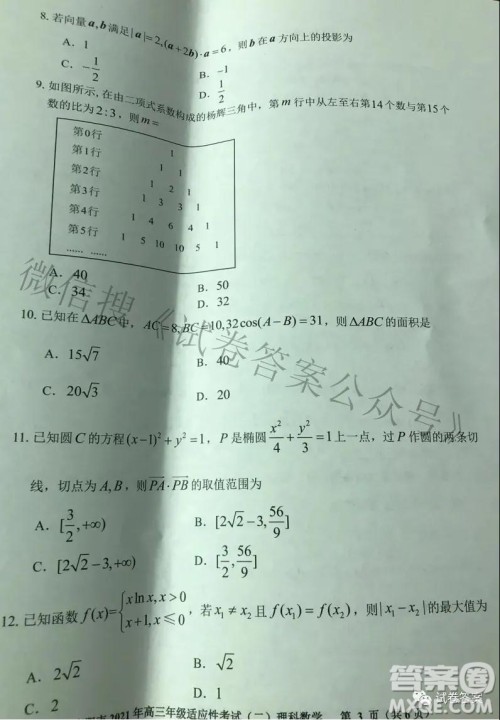 8. 若向量 a,b 满足|a|=2,(a+2b)·a=6，则 b 在 a 方向上的投影为
A. 1
B. -1
C. -1/2
D. 1/2
9. 如图所示，在由二项式系数构成的杨辉三角中，第 m 行中从左至右第14个数与第15个
数的比为 2:3，则 m=
第0行 1
第1行 1 1
第2行 1 2 1
第3行 1 3 3 1
第4行 1 4 6 4 1
第5行 1 5 10 10 5 1
…… ……
A. 40
B. 50
C. 34
D. 32
10. 已知在 ΔABC 中，AC=8,BC=10,32cos(A-B)=31，则 ΔABC 的面积是
A. 15√7
B. 40
C. 20√3
D. 20
11. 已知圆 C 的方程(x-1)²+y²=1，P 是椭圆 x²/4+y²/3=1 上一点，过 P 作圆的两条切
线，切点为 A,B，则 PA·PB 的取值范围为
A. [3/2,+∞)
B. [2√2-3,56/9]
C. [2√2-3,+∞)
D. [3/2,56/9]
12. 已知函数 f(x)={xlnx,x>0 x+1,x≤0，若 x₁≠x₂ 且 f(x₁)=f(x₂)，则|x₁-x₂|的最大值为
A. 2√2
B.
C. 2
2021年高三年级适应性考试（二）理科数学 第 3 页
微信搜《试卷答案公众号》
答案圈
试卷答案